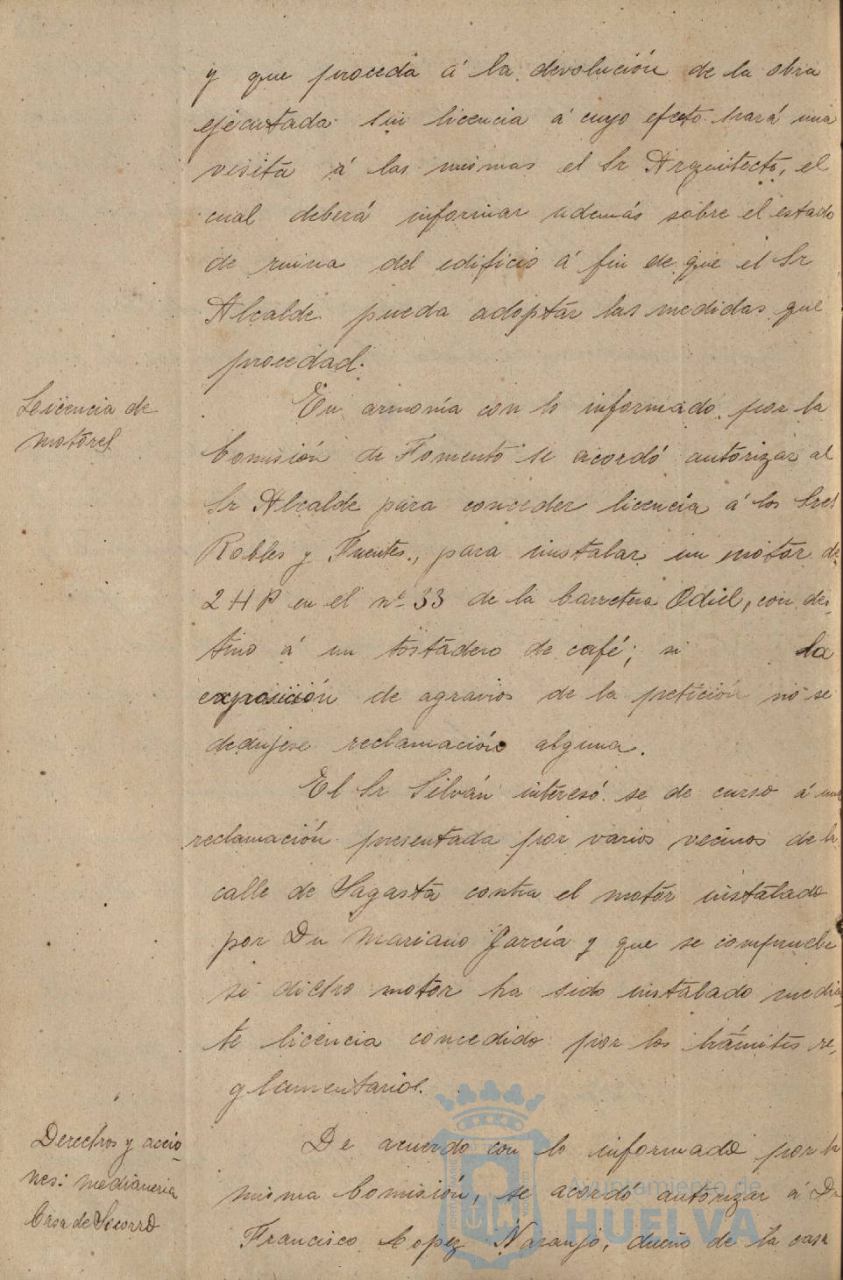 y que proceda á la devolución de la obra
ejecutada sin licencia á cuyo efecto hará una
visita á las mismas el Sr Arquitecto, el
cual deberá informar además sobre el estado
de ruina del edificio á fin de que el Sr
Alcalde pueda adoptar las medidas que
procedad.
Licencia de
motores
En armonía con lo informado por la
Comisión de Fomento se acordó autorizar al
Sr Alcalde para conceder licencia á los Sres
Robles y Fuentes., para instalar un motor de
2 HP en el nº 33 de la Carretera Odiel, con des-
tino á un tostadero de café; si la
exposición de agravios de la petición no se
dedujese reclamación alguna.
El Sr Silván interesó se de curso á una
reclamación presentada por varios vecinos de la
calle de Sagasta contra el motor instalado
por Dn Mariano García y que se compruebe
si dicho motor ha sido instalado median
te licencia concedido por los trámites re-
glamentarios.
Derechos y accio-
nes: medianeria
Casa de Socorro
De acuerdo con lo informado por la
misma Comisión, se acordó autorizar á Dn
Francisco Lopez Naranjo, dueño de la casa
Ayuntamiento de
HUELVA